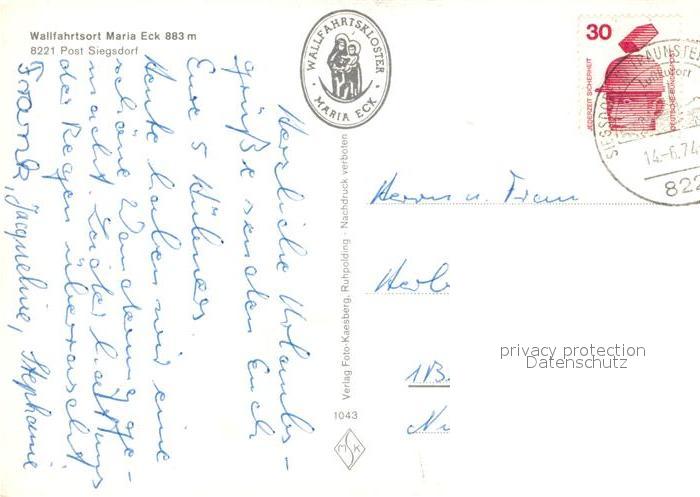 Wallfahrtsort Maria Eck 883 m
8221 Post Siegsdorf
WALLFAHRTSKLOSTER
MARIA ECK
Herzliche Urlaubs-
grüße senden Euch
Eure 5 Hübners.
Heute haben wir eine
schöne Wanderung ge-
macht. Leider hat uns
der Regen überrascht
Frank, Jacqueline, Stephanie
Verlag Foto-Kaesberg, Ruhpolding · Nachdruck verboten
1043
M S K
30
JEDERZEIT SICHERHEIT
DEUTSCHE BUNDESPOST
14.-6.74
822
Herrn u. Frau
Herb
1 B
privacy protection
Datenschutz